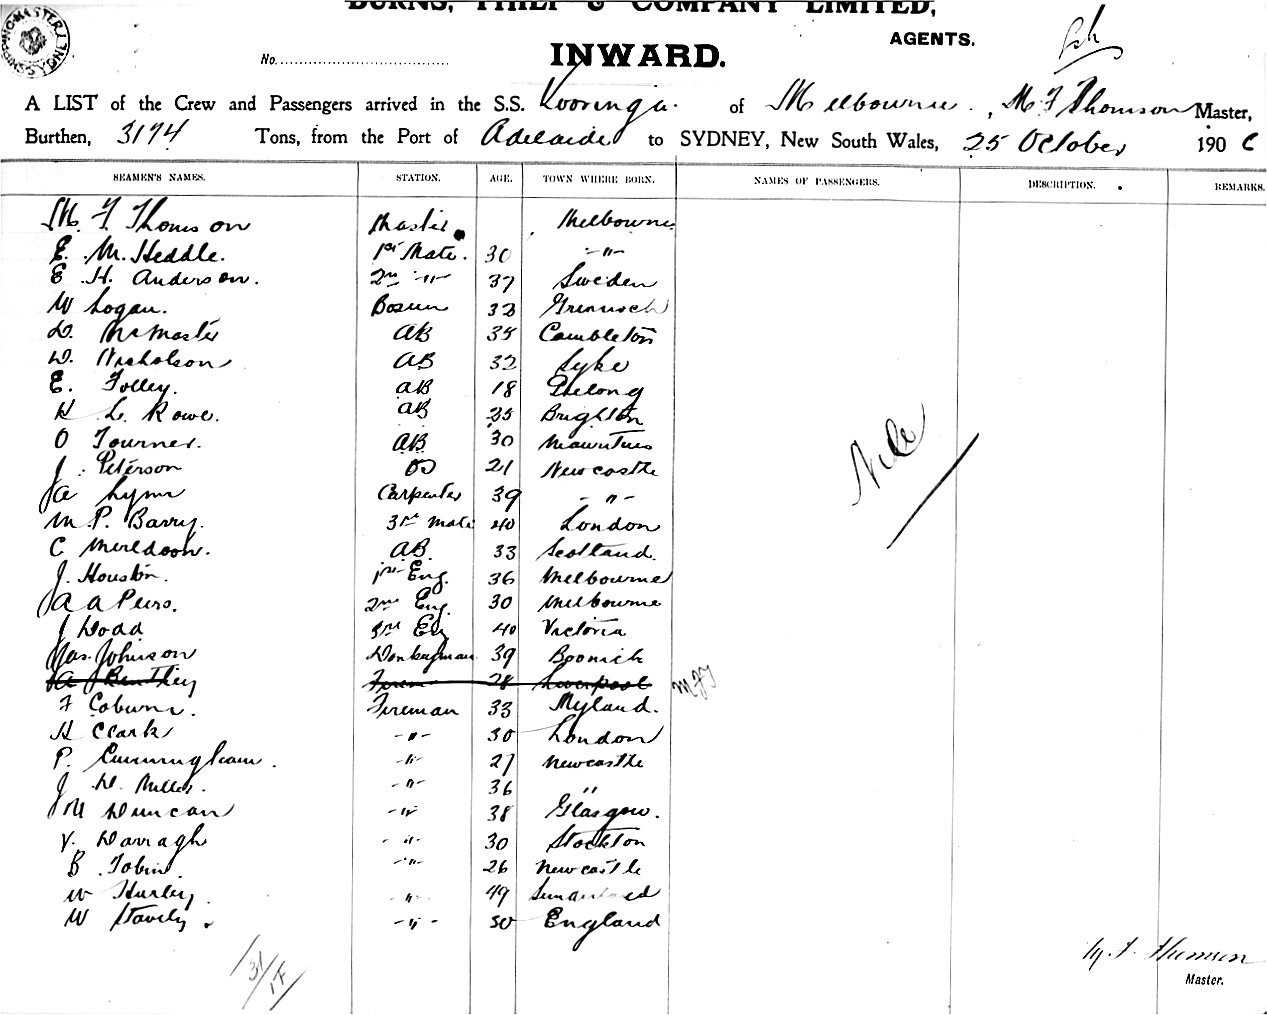 BURNS, PHILP & COMPANY LIMITED,
AGENTS.
SHIPPING MASTER SYDNEY
No.
INWARD.
A LIST of the Crew and Passengers arrived in the S.S. Kooringa. of Melbourne, M F Thomson Master,
Burthen, 3174 Tons, from the Port of Adelaide to SYDNEY, New South Wales, 25 October 190
SEAMEN'S NAMES. STATION. AGE. TOWN WHERE BORN. NAMES OF PASSENGERS. DESCRIPTION. REMARKS.
M. F Thomson Master Melbourne
E. M. Heddle. 1st Mate. 30 -"-
E H. Anderson. 2nd -"- 37 Sweden
W Logan. Bosun 33 Greenock
D. McMaster AB 35 Cambleton
D. Nicholson AB 32 Syke
E. Folley. AB 18 Geelong
H L. Rowe. AB 25 Brighton
O Tourner. AB 30 Mauritius
J. Peterson OS 21 Newcastle
A Lynn Carpenter 39 -"-
M. P. Barry. 3rd Mate 40 London
C AB. 33 Scotland.
J. Houston. 1st Eng. 36 Melbourne
A A Peers. 2nd Eng. 30 Melbourne
J Dodd 3rd Eng 40 Victoria
Jas. Johnson Donkeyman 39
A J Benthey Firem 28 Liverpool MFT
F Coburn. Fireman 33 Myland.
H Clark -"- 30 London
P. Cunningham. -"- 27 Newcastle
J. D. Miller. -"- 36 "
M Duncan -"- 38 Glasgow.
V. Darragh -"- 30 Stockton
B Tobin. -"- 26 Newcastle
W Hurley. -"- 49 Sunderland
W Stavely. -"- 50 England
Nil
31/17
M. F. Thomson
Master.